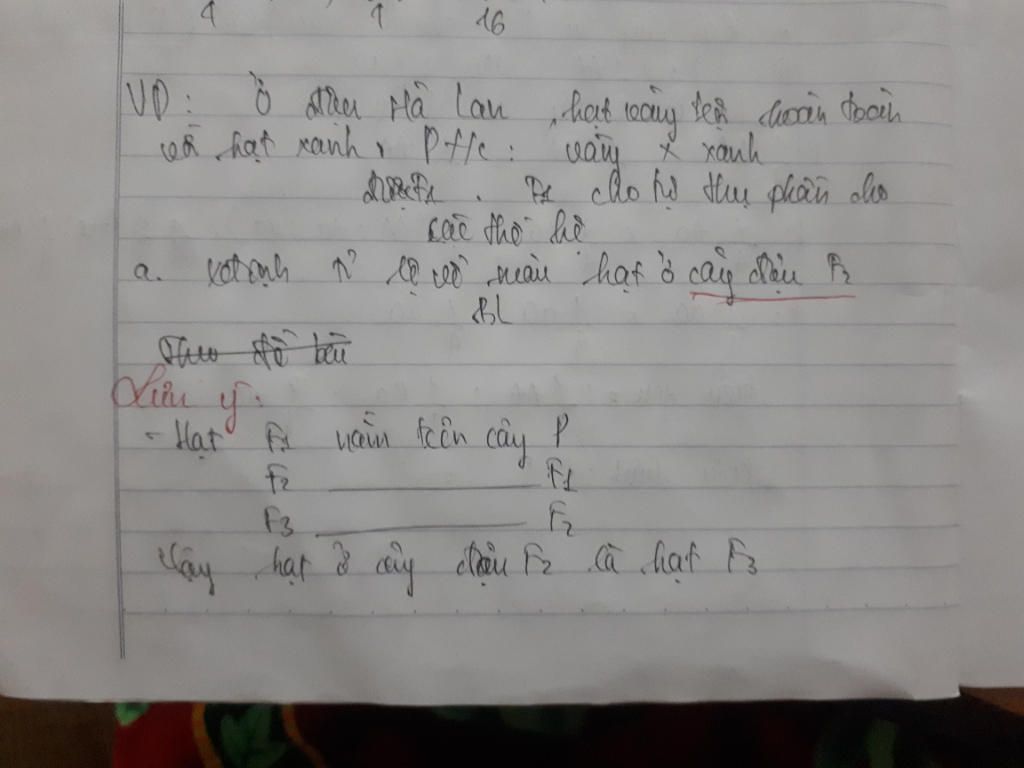 1 1 16
VD: Ở đậu Hà Lan, hạt vàng trội hoàn toàn
với hạt xanh, Pt/c: vàng x xanh
được F1. F1 cho tự thụ phấn cho
các thế hệ
a. Xđ tỉ lệ về màu hạt ở cây đậu F2
BL
Theo đề bài
Lưu ý:
- Hạt F1 nằm trên cây P
F2 ________ F1
F3 ________ F2
Vậy hạt ở cây đậu F2 là hạt F3